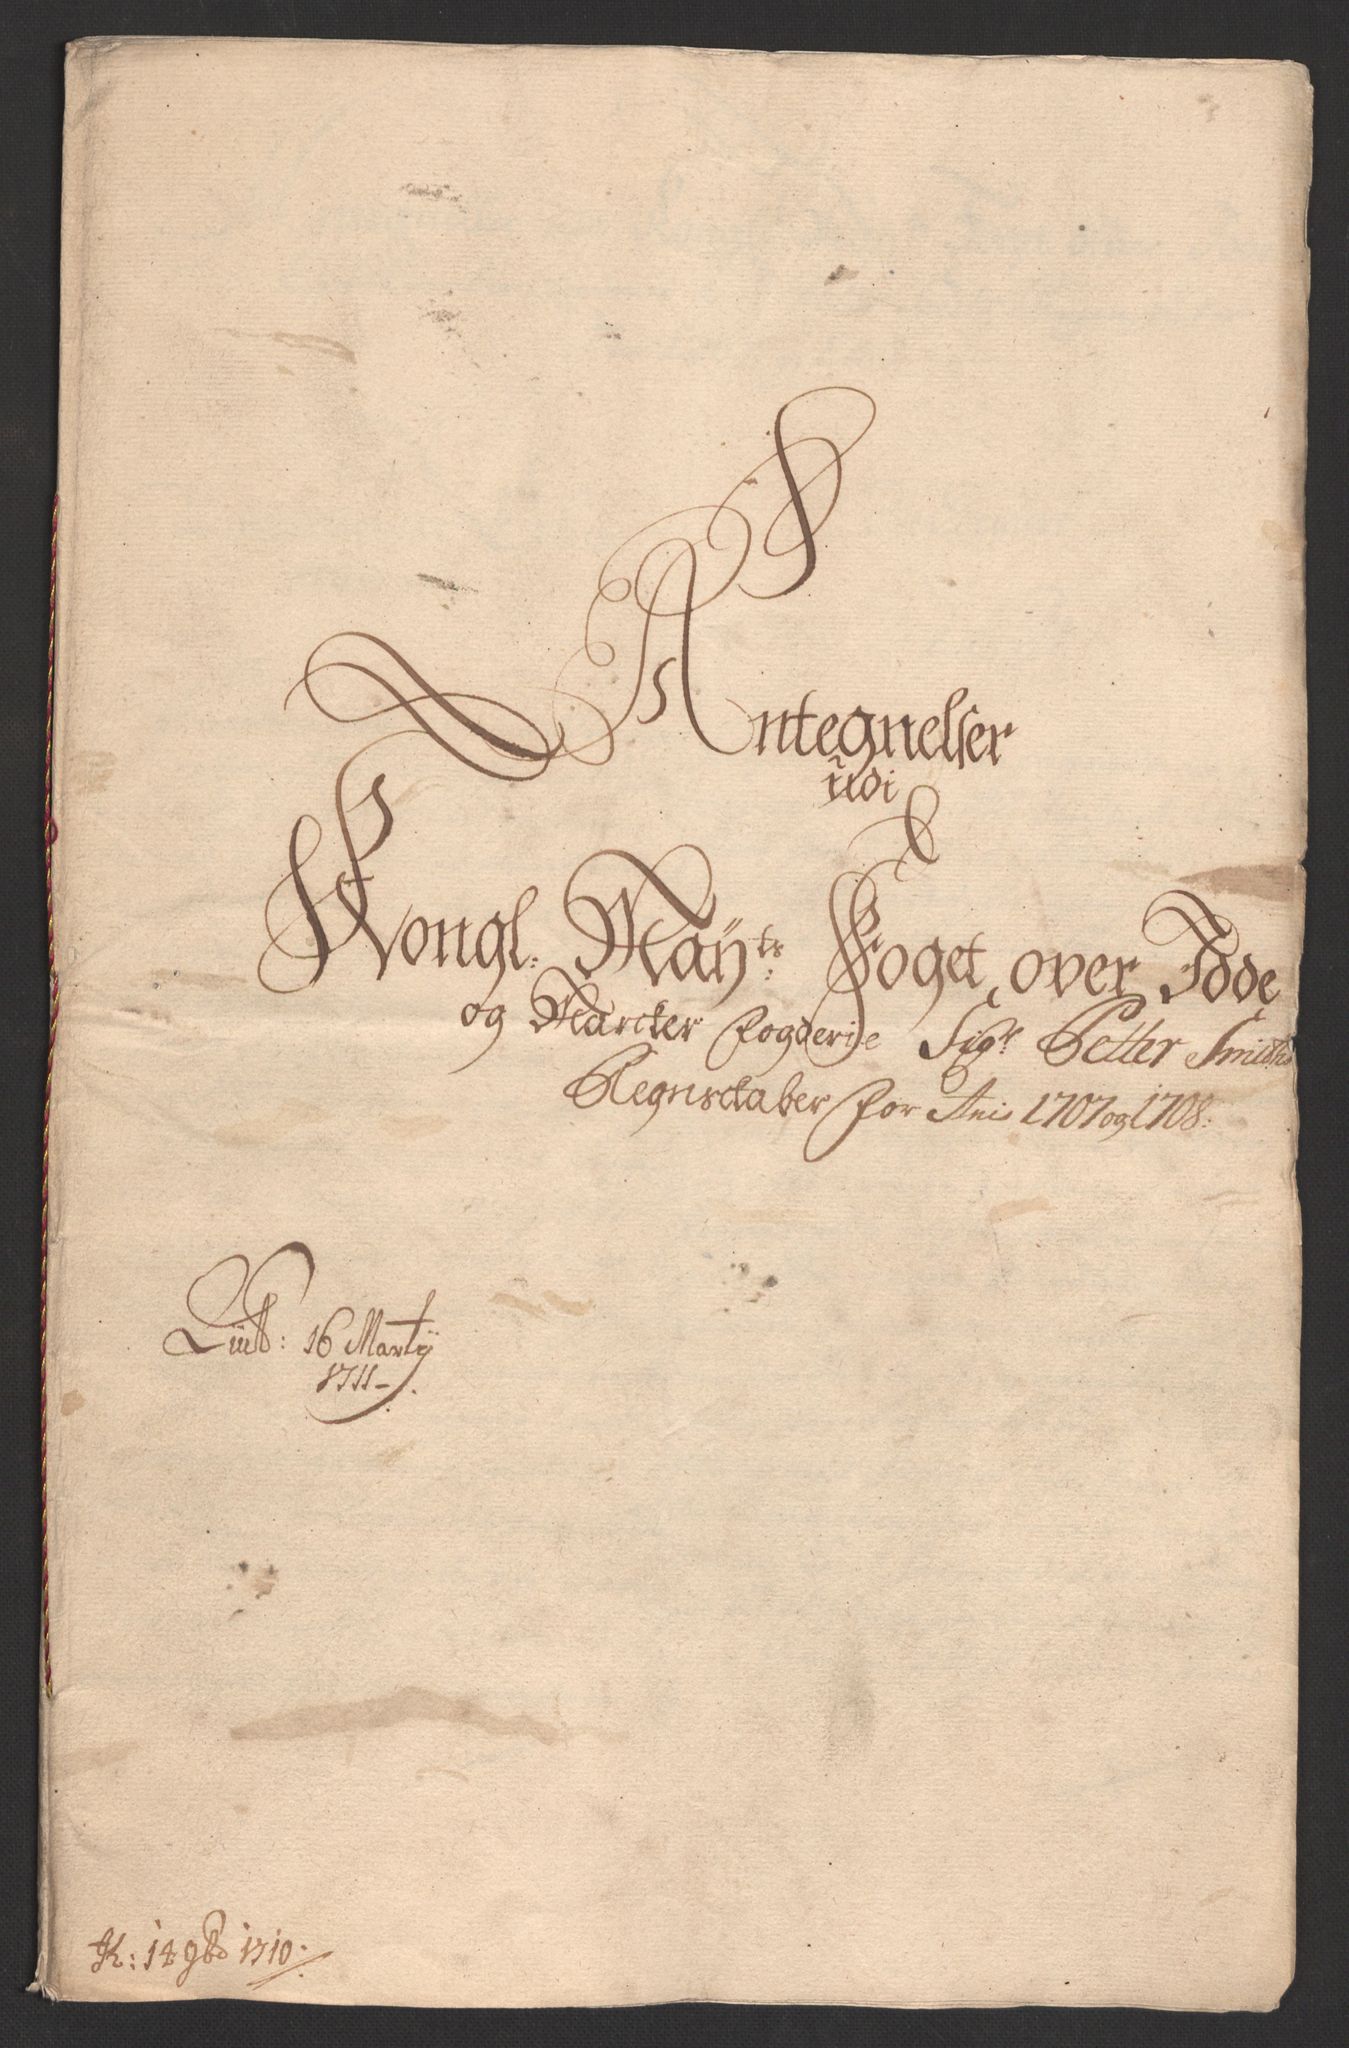 Antegnelser
udi
Kongl: Maÿts: Foget over Idde
og Marcker fogderie Sigr Petter Smidts
Regnskaber for Anis 1707 og 1708:
Qvit: 16 Martÿ
1711
K: 1710.